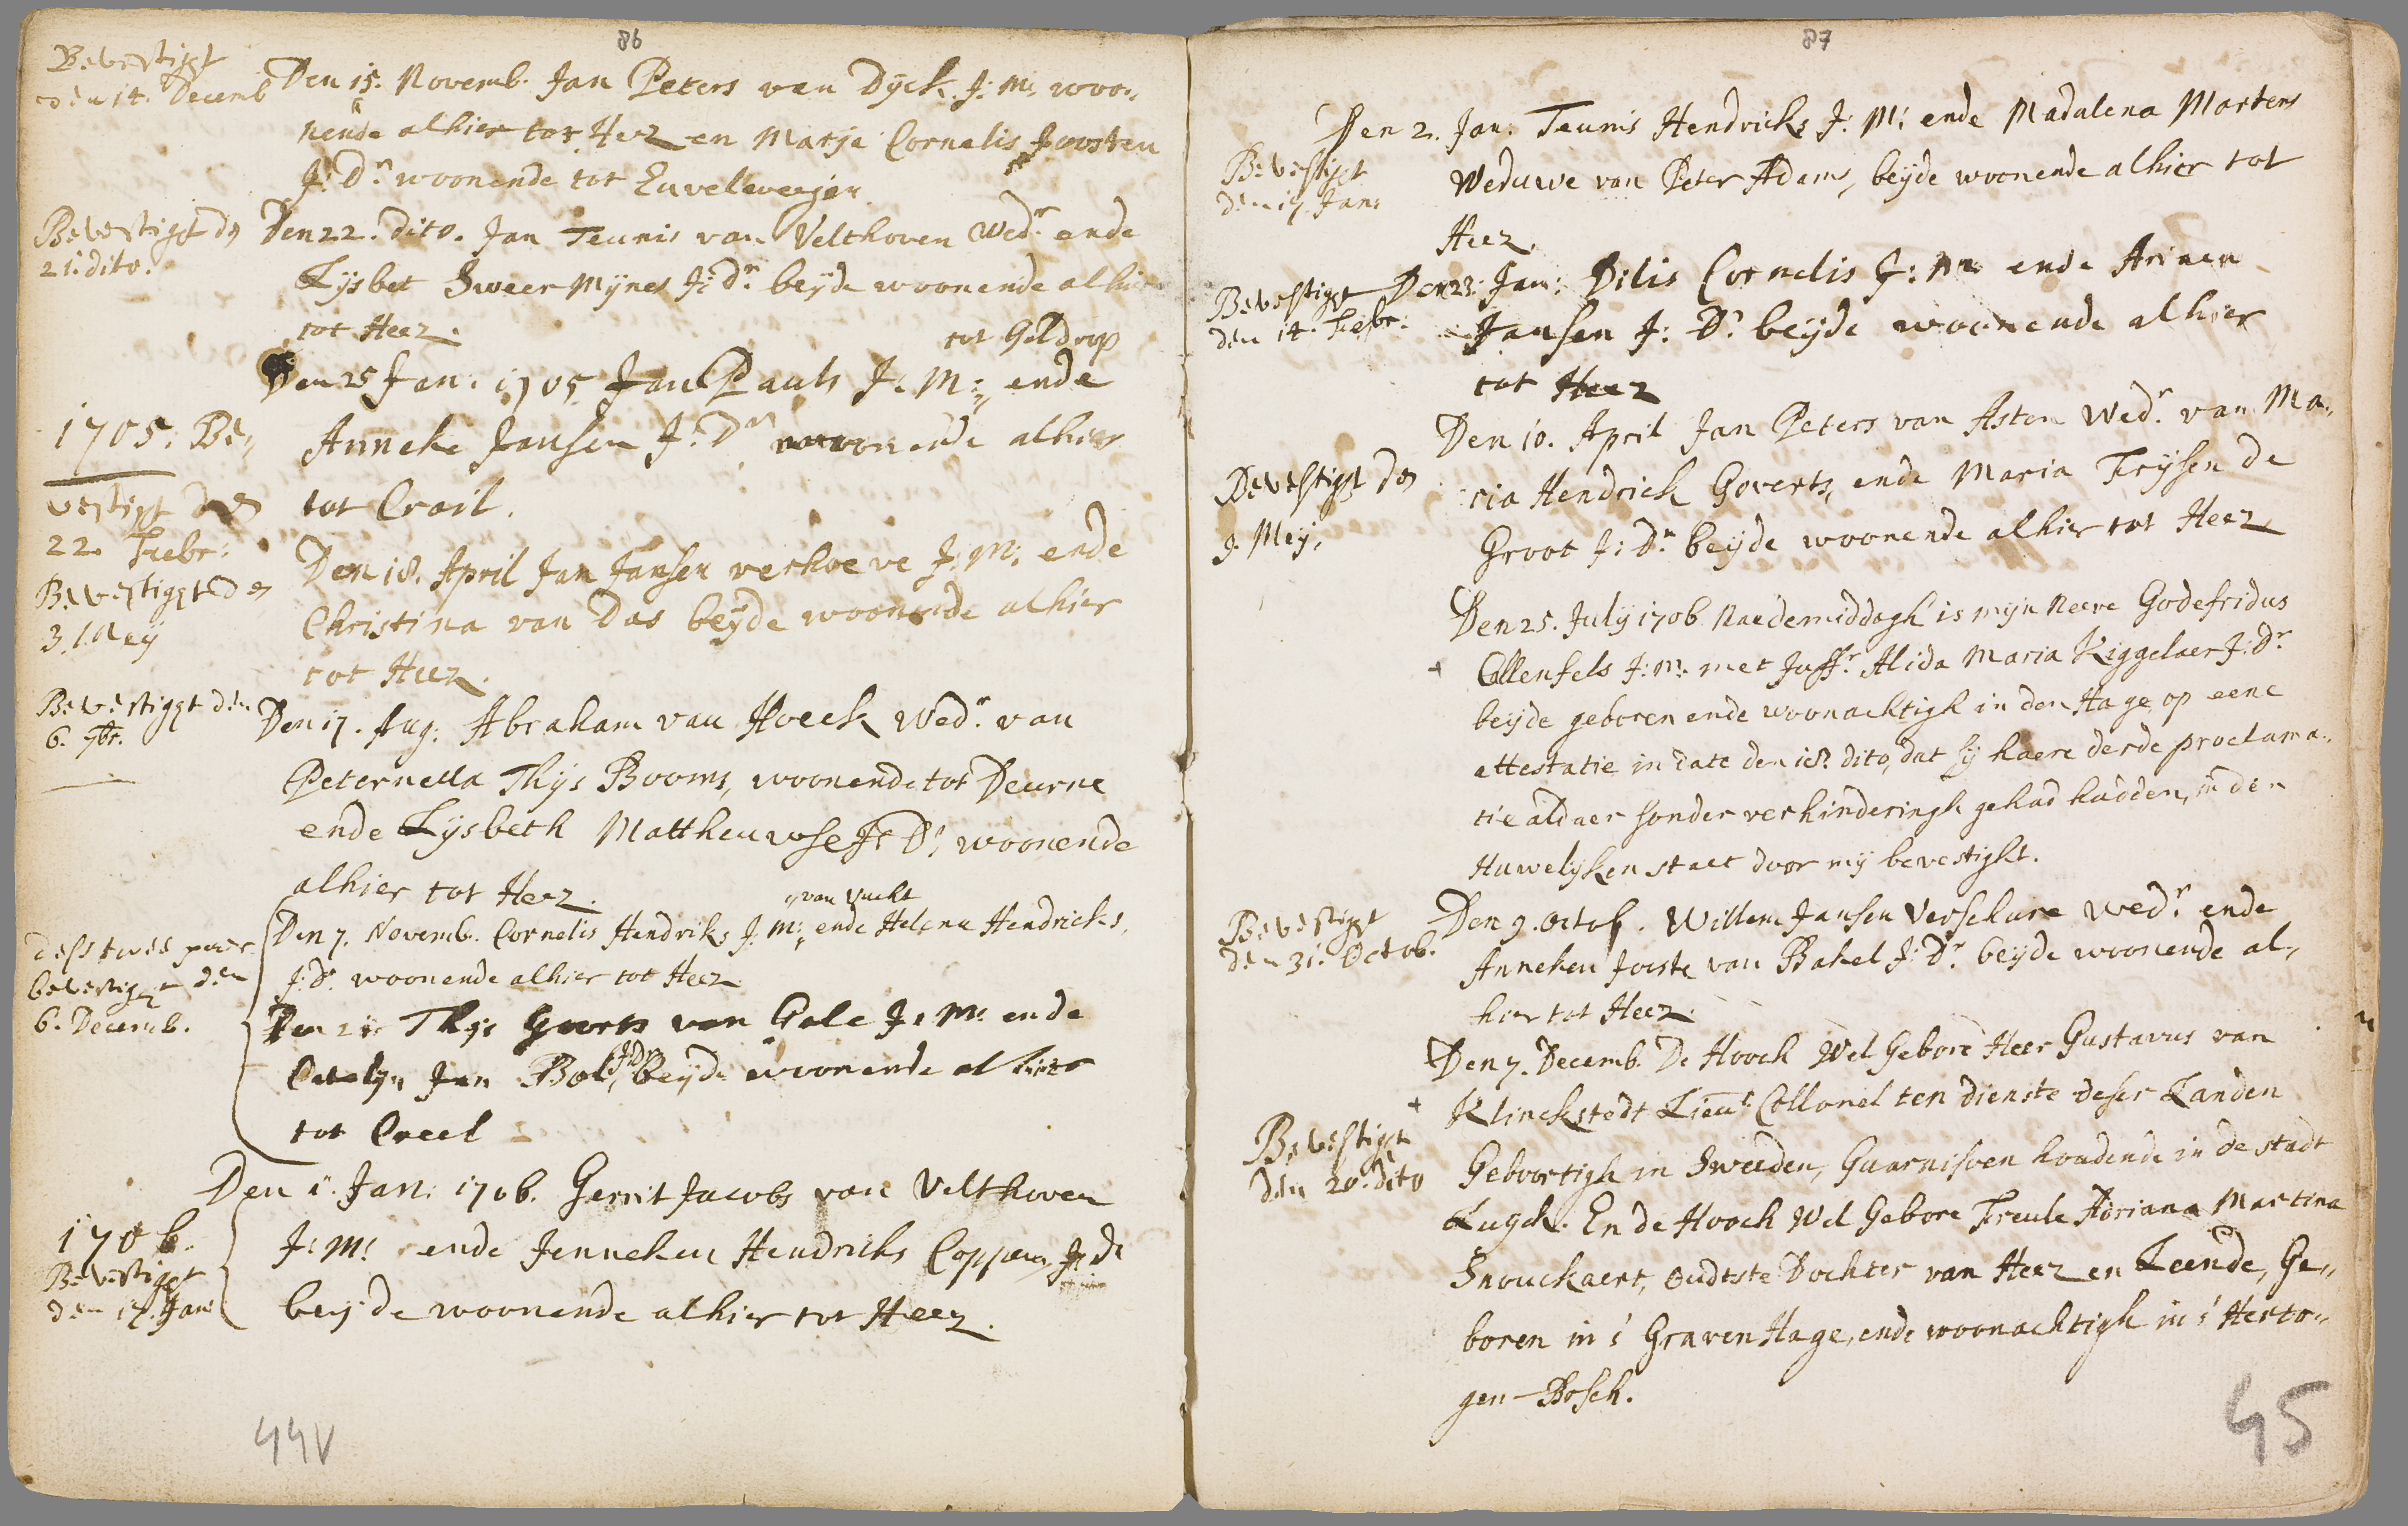 86
Bevestigt
den 14. Decemb
Den 15. Novemb. Jan Peters van Dÿck J: M: woo„
nende alhier tot Heez en Marje Cornelis Joosten
J: Dr. woonende tot
Bevestigt den
21. dito.
Den 22. dito. Jan Teunis van Velthoven Wedr. ende
Lijsbet Sweer Mÿnes J: dr. beÿde woonende alhier
tot Heez.
tot Geldrop
Den 25 Jan: 1705 Jan Pauls J: M: ende
Anneke Jansen J: Dr woonende alhier
tot Crail.
1705. Be„
vestigt den
22. Febr:
Den 18. April Jan Jansen verhoeve J: M: ende
Christina van Das beÿde woonende alhier
tot Heez.
Bevestigt den
3. Meÿ
Bevestigt den
6. 7br.
Den 17. Aug: Abraham van Hoeck Wedr. van
Peternella Thijs Booms, woonende tot Deurne
ende Lijsbeth Mattheuwse J: Dr, woonende
alhier tot Heez.
van Vucht
Den 7. Novemb. Cornelis Hendriks J: M: ende Helena Hendricks,
J: Dr. woonende alhier tot Heez
dese twee paer
bevestigt den
6. Decemb.
Den 21. Thijs Goorts van Gale J: M: ende
J: Dr
Catalijn Jan Bol, beÿde woonende alhier
tot Creel
Den 1. Jan: 1706. Gerrit Jacobs van Velthoven
J: M: ende Jenneken Hendricks Coppens J: Dr
beÿde woonende alhier tot Heez.
1706.
Bevestigt
den 17. Jan:
44V
87
Den 2. Jan: Teunis Hendricks J: M: ende Madalena Martens
Weduwe van Peter Adams, beÿde woonende alhier tot
Heez.
Bevestigt
den 17. Jan:
Bevestigt
den 14. Febr:
Den 23. Jan: Dilis Cornelis J: M: ende Arinen
Jansen J: Dr. beÿde woonende alhier
tot Heez
Den 10. April Jan Peters van Asten Wedr. van Ma„
ria Hendrick Goverts, ende Maria Frijsen de
Groot J: Dr. beÿde woonende alhier tot Heez
Bevestigt den
9. Meÿ.
Den 25. Julÿ 1706 Naedemiddagh is mijn Neeve Godefridus
+ Collenfels J: M: met Juffr. Alida Maria Kiggelaer J: Dr.
beijde geboren ende woonachtigh in den Hage op eene
attestatie in date den 18. dito, dat sij haere derde proclama„
tie aldaer sonder verhinderingh gehad hadden, in den
Huwelijken staet door mij bevestight.
Bevestigt
den 31. Octob.
Den 9. Octob. Willem Jansen Verschure Wedr. ende
Anneken Joosten van Bakel J: Dr. beÿde woonende al„
hier tot Heez.
Den 7. Decemb. De Hooch Wel Gebore Heer Gustavus van
+ Klinckstedt Lieut. Collonel ten dienste deser Landen
Geboortigh in Sweeden, Guarnisoen houdende in de stadt
Luyck. En de Hooch Wel Gebore Freule Adriana Martina
Snouckaert, oudtste Dochter van Heez en Leende, Ge„
boren in s' GravenHage, ende woonachtigh in s' Herto„
gen-Bosch.
Bevestigt
den 20. dito
45